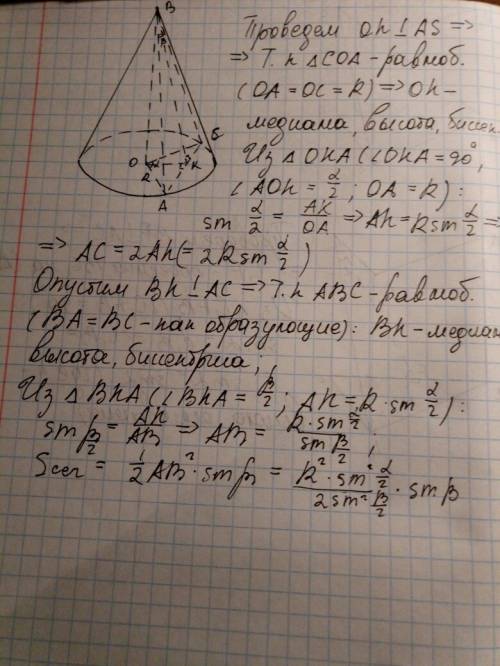 B
O
R
K
A
Проведем OK ⊥ AS =>
=> Т.к ΔCOA - равноб.
(OA = OC = R) => OK -
медиана, высота, биссек
Из ΔOKA (∠OKA = 90°,
∠AOK = α/2; OA = R):
sin α/2 = AK/OA => AK = R sin α/2 =>
=> AC = 2AK (= 2R sin α/2)
Опустим BK ⊥ AC => Т.к ABC - равноб.
(BA = BC - как образующие): BK - медиан
высота, биссектриса;
Из ΔBKA (∠BKA = β/2; AK = R · sin α/2):
sin β/2 = AK/AB => AB = R · sin α/2 / sin β/2;
Sсеч = 1/2 AB² · sin β = R² · sin² α/2 / 2 sin² β/2 · sin β